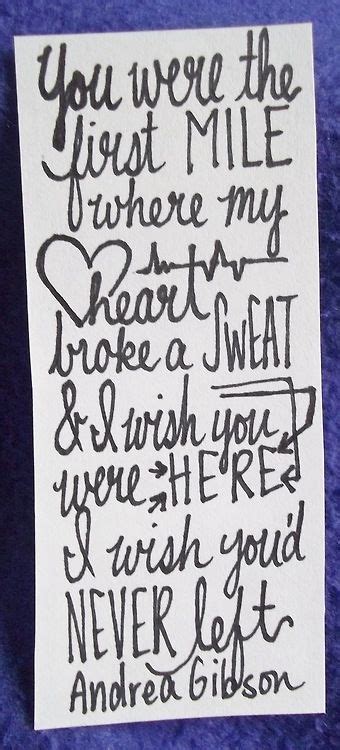 You were the
first MILE
where my
heart
broke a SWEAT
& I wish you
were HERE
I wish you'd
NEVER left
Andrea Gibson